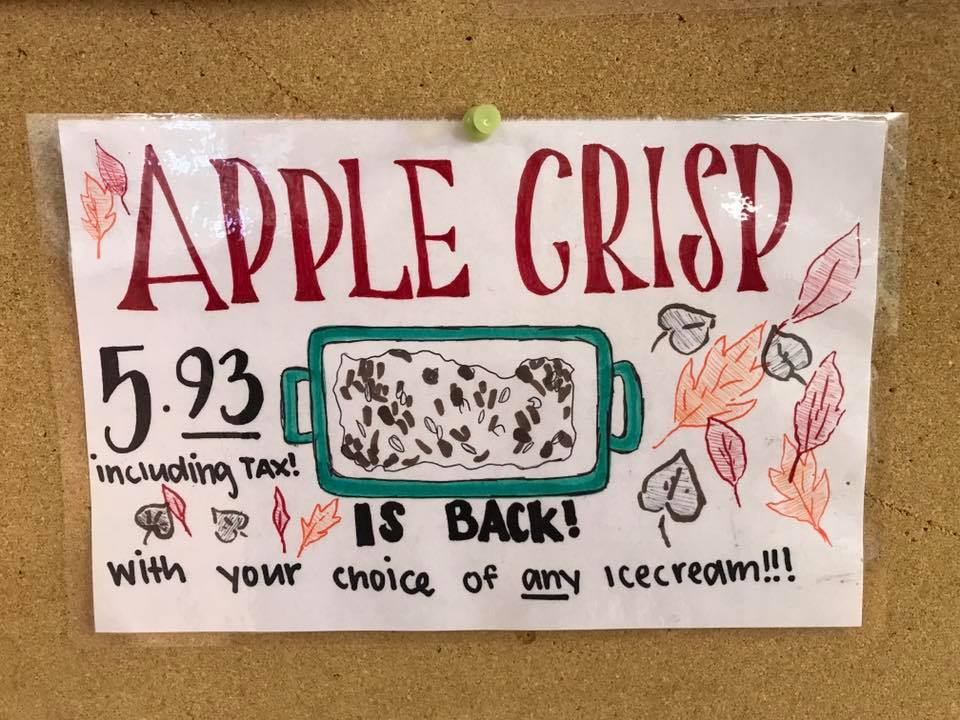 APPLE CRISP
5.93
including TAX!
IS BACK!
with your choice of any icecream!!!